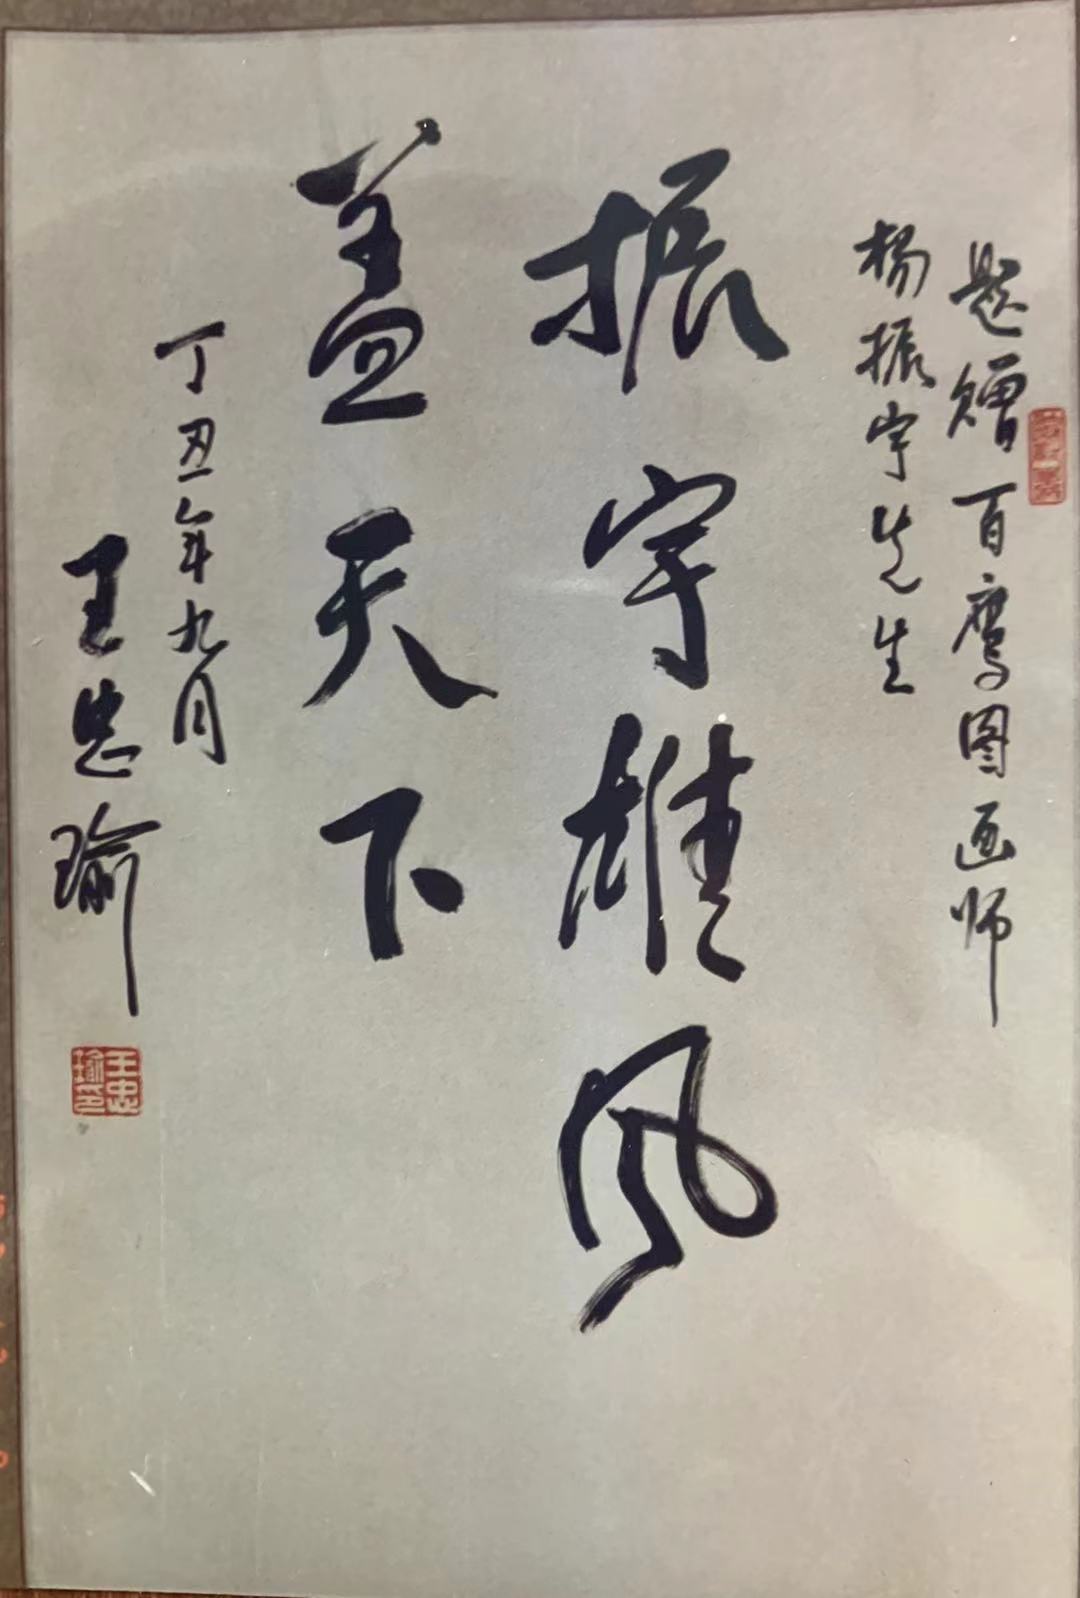 题赠百鹰图画师
杨振宇先生
振宇雄风
盖天下
丁丑年九月
王忠瑜
王忠
瑜印